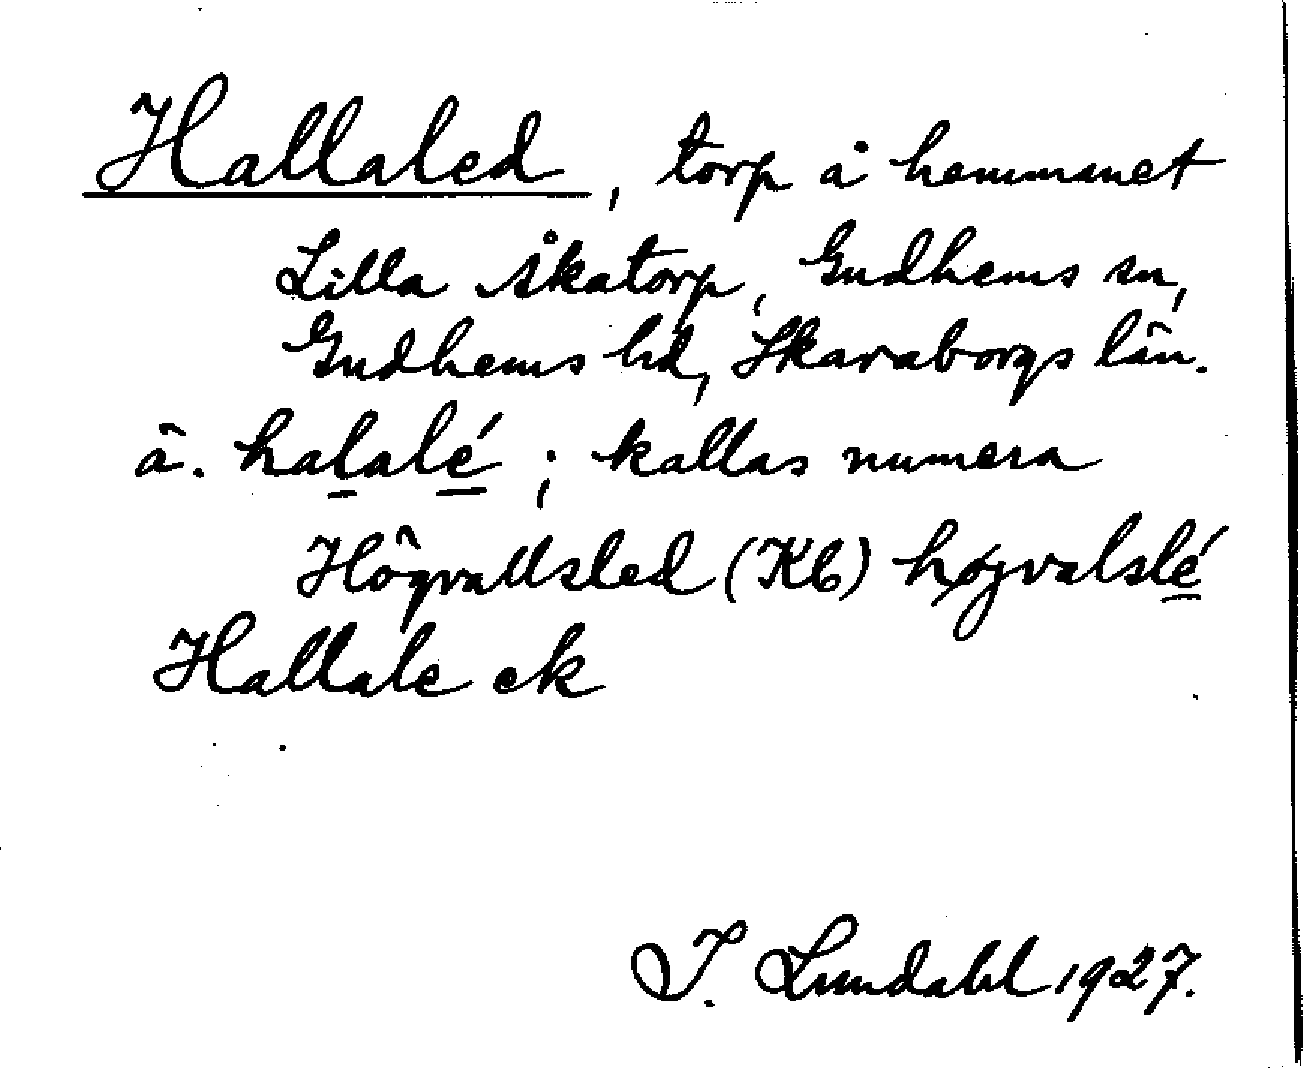 Hallaled, torp å hemmanet
Lilla Åkatorp, Gudhems sn,
Gudhems hd, Skaraborgs län.
ä. halalé; kallas numera
Högvallsled (Kb) højvalslé
Hallale ek
I. Lundahl 1927.